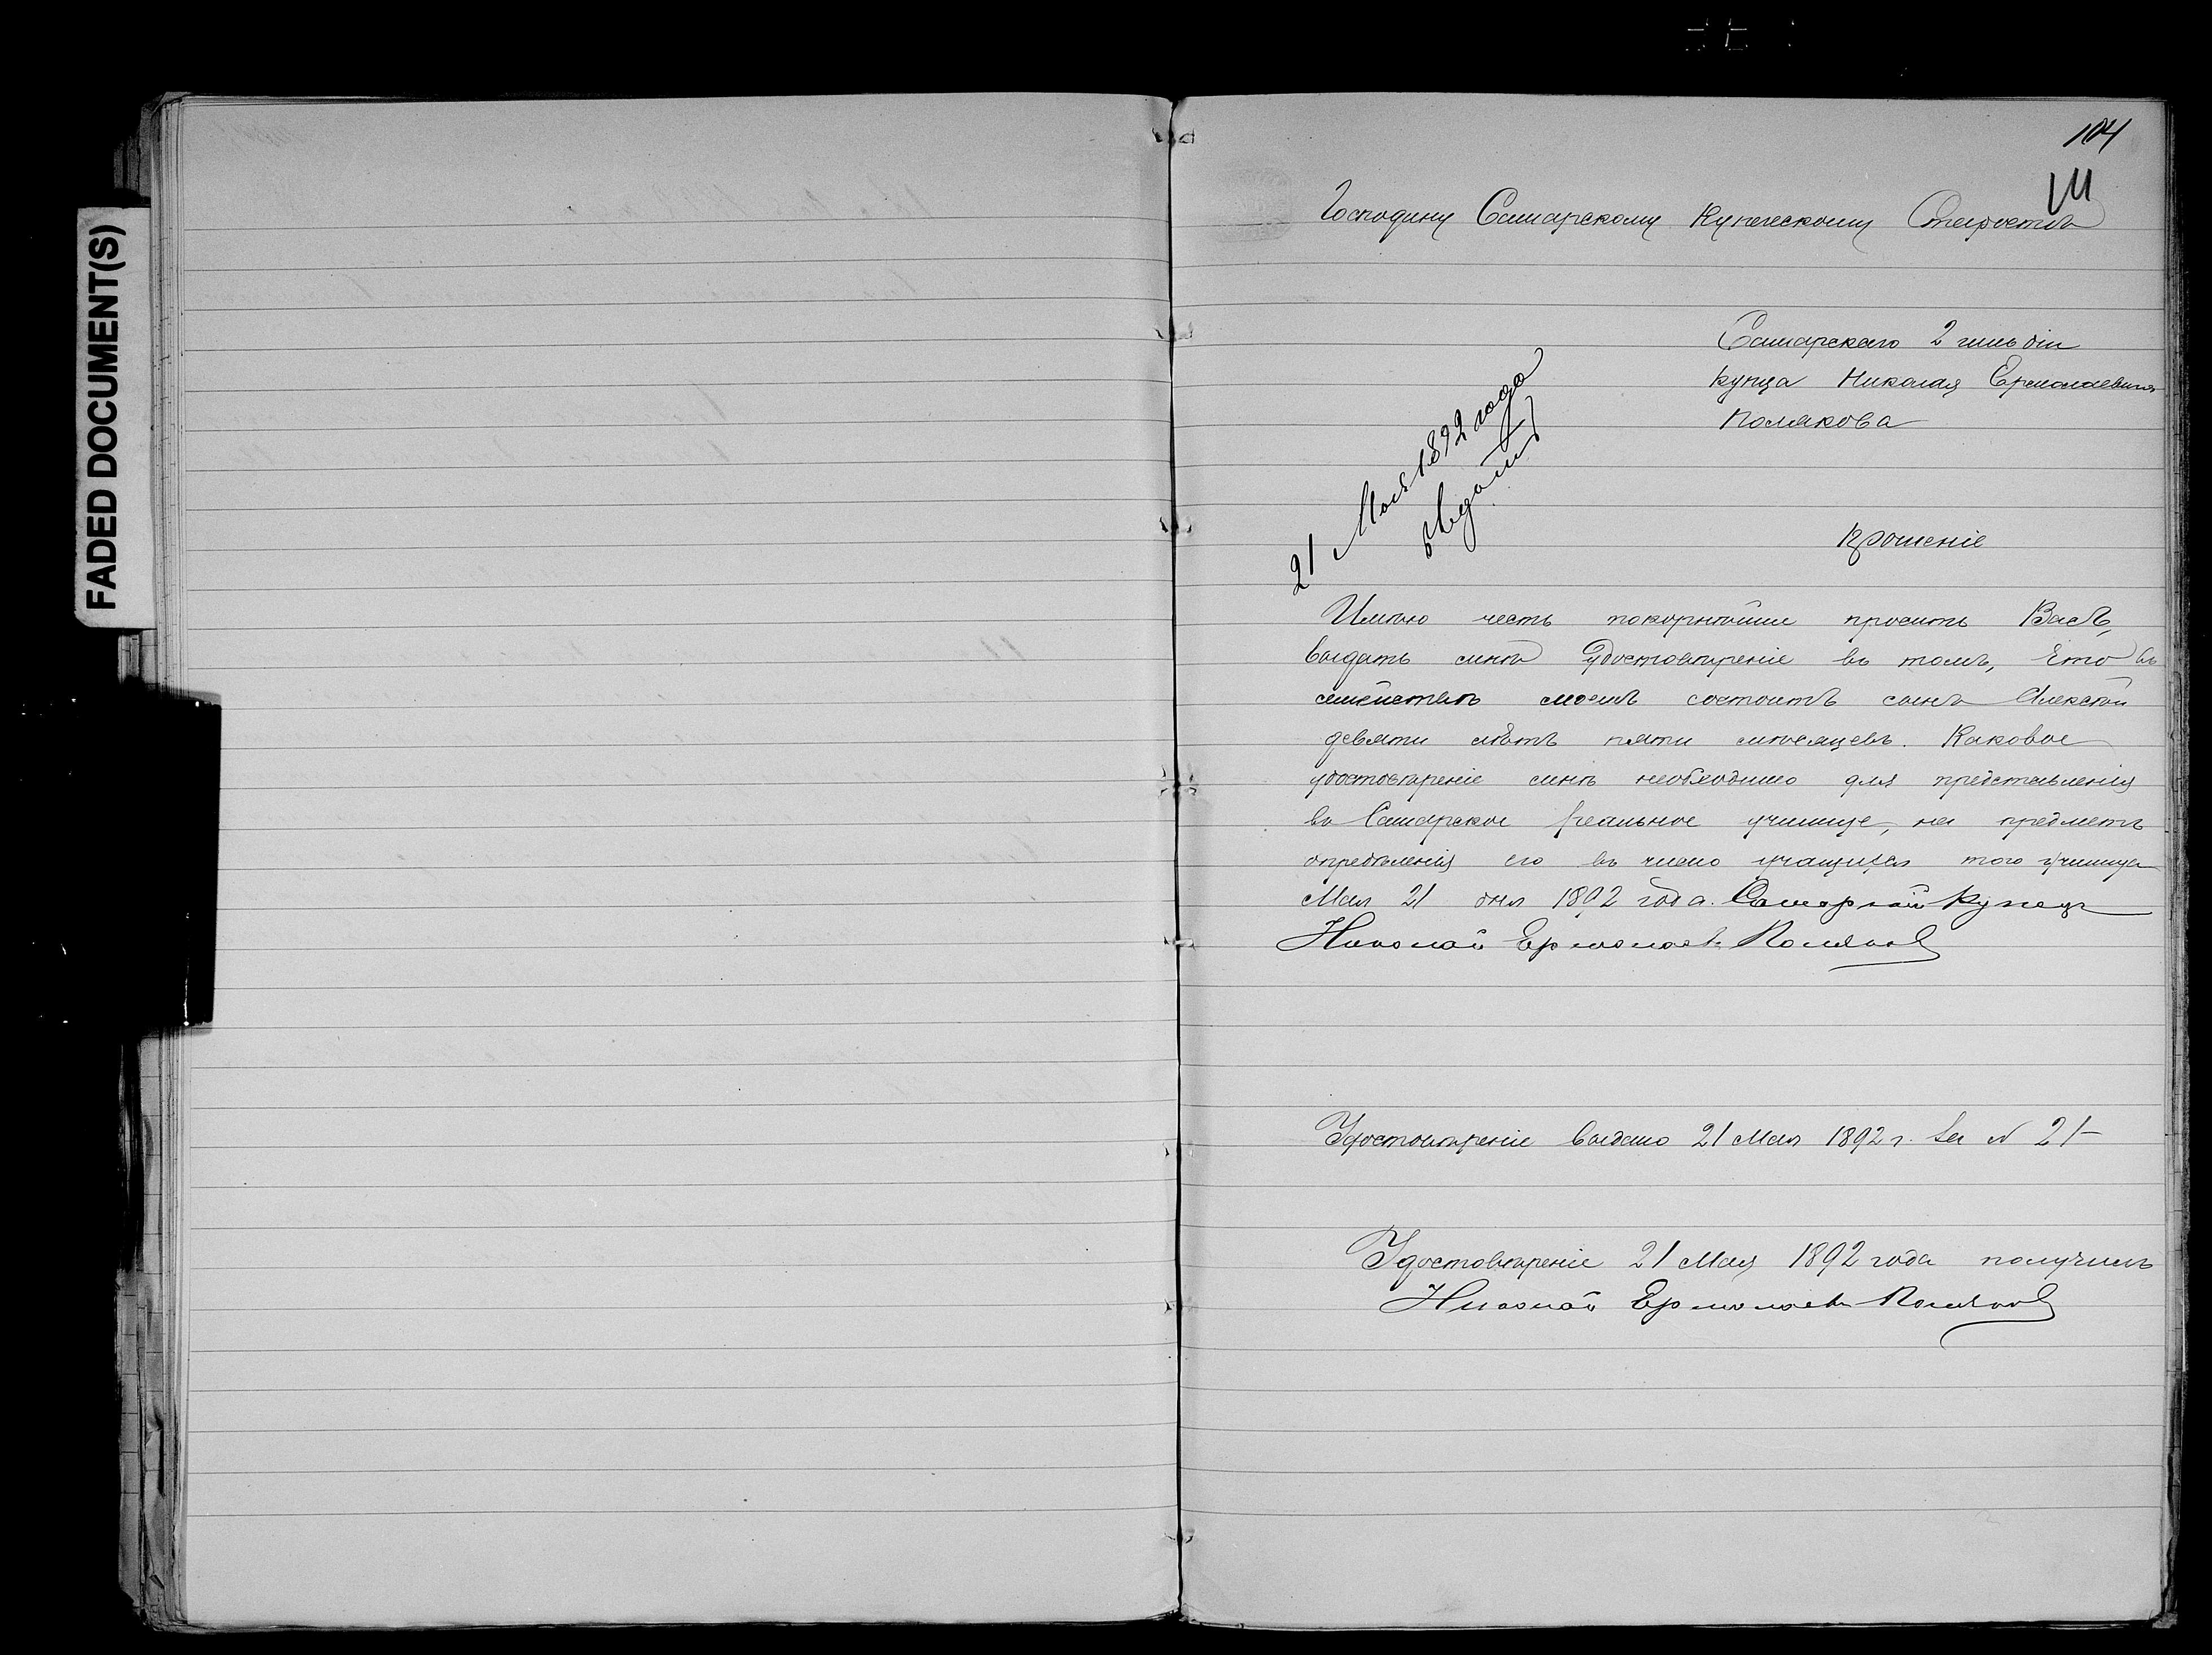 FADED DOCUMENT(S)
104
111
Господину Самарскому Купеческому Старостѣ
Самарскаго 2 гильдіи
купца Николая Ермолаевича
Полякова
21 Мая 1892 года
Прошеніе
Имѣю честь покорнѣйше просить Васъ,
выдать мнѣ Удостовѣреніе въ томъ, Что въ
семействѣ моемъ состоитъ сынъ Алексѣй
девяти лѣтъ пяти мѣсяцевъ. Каковое
удостовѣреніе мнѣ необходимо для представленія
въ Самарское реальное училище, на предметъ
опредѣленія его въ число учащихся того училища
Мая 21 дня 1892 года. Самарскій Купецъ
Николай Ермолаевъ Поляковъ
Удостовѣреніе выдано 21 Мая 1892 г. За № 21
Удостовѣреніе 21 Мая 1892 года получилъ
Николай Ермолаевъ Поляковъ